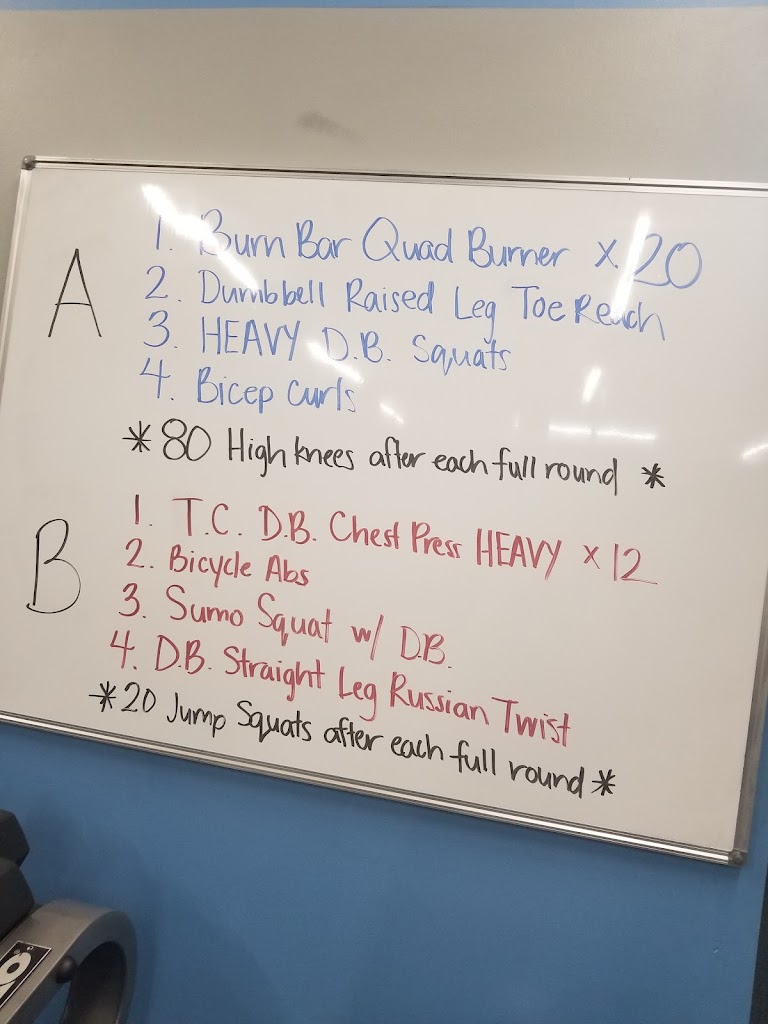 A
1. Burn Bar Quad Burner x 20
2. Dumbbell Raised Leg Toe Reach
3. HEAVY D.B. Squats
4. Bicep Curls
*80 High knees after each full round *
B
1. T.C. D.B. Chest Press HEAVY x 12
2. Bicycle Abs
3. Sumo Squat w/ D.B.
4. D.B. Straight Leg Russian Twist
*20 Jump Squats after each full round*